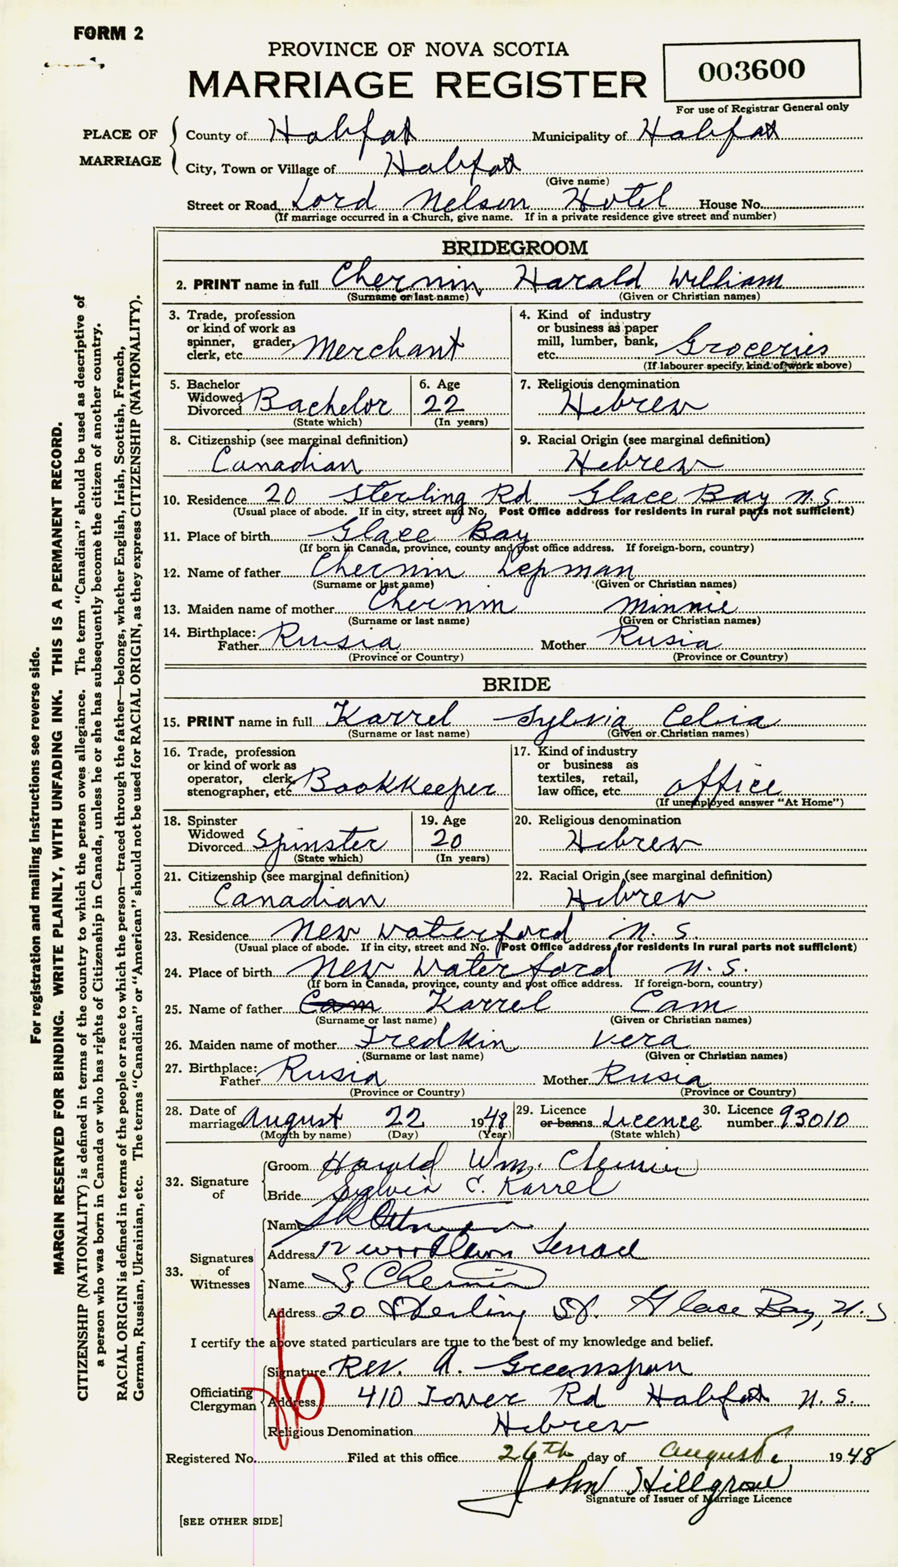 FORM 2
PROVINCE OF NOVA SCOTIA
MARRIAGE REGISTER
003600
For use of Registrar General only
PLACE OF MARRIAGE
County of Halifax Municipality of Halifax
City, Town or Village of Halifax
(Give name)
Street or Road Lord Nelson Hotel House No.
(If marriage occurred in a Church, give name. If in a private residence give street and number)
BRIDEGROOM
2. PRINT name in full Chernin Harald William
(Surname or last name) (Given or Christian names)
3. Trade, profession or kind of work as spinner, grader, clerk, etc. Merchant
4. Kind of industry or business as paper mill, lumber, bank, etc. Groceries
(If labourer specify, kind of work above)
5. Bachelor Widowed Divorced Bachelor
(State which)
6. Age 22
(In years)
7. Religious denomination Hebrew
8. Citizenship (see marginal definition) Canadian
9. Racial Origin (see marginal definition) Hebrew
10. Residence 20 Sterling Rd Glace Bay N.S.
(Usual place of abode. If in city, street and No. Post Office address for residents in rural parts not sufficient)
11. Place of birth Glace Bay
(If born in Canada, province, county and post office address. If foreign-born, country)
12. Name of father Chernin Lepman
(Surname or last name) (Given or Christian names)
13. Maiden name of mother Chernin Minnie
(Surname or last name) (Given or Christian names)
14. Birthplace: Father Russia Mother Rusia
(Province or Country) (Province or Country)
BRIDE
15. PRINT name in full Karrel Sylvia Celia
(Surname or last name) (Given or Christian names)
16. Trade, profession or kind of work as operator, clerk, stenographer, etc. Bookkeeper
17. Kind of industry or business as textiles, retail, law office, etc. office
(If unemployed answer "At Home")
18. Spinster Widowed Divorced Spinster
(State which)
19. Age 20
(In years)
20. Religious denomination Hebrew
21. Citizenship (see marginal definition) Canadian
22. Racial Origin (see marginal definition) Hebrew
23. Residence New Waterford N.S.
(Usual place of abode. If in city, street and No. Post Office address for residents in rural parts not sufficient)
24. Place of birth New Waterford N.S.
(If born in Canada, province, county and post office address. If foreign-born, country)
25. Name of father Cam Karrel Cam
(Surname or last name) (Given or Christian names)
26. Maiden name of mother Fredkin Vera
(Surname or last name) (Given or Christian names)
27. Birthplace: Father Rusia Mother Rusia
(Province or Country) (Province or Country)
28. Date of marriage August 22 1948
(Month by name) (Day) (Year)
29. Licence or banns Licence
(State which)
30. Licence number 93010
32. Signature of
Groom Harald Wm. Chernin
Bride Sylvia C. Karrel
33. Signatures of Witnesses
Name
Address 12 Woodlawn
Name S Chernin
Address 20 Sterling St. Glace Bay, N.S
I certify the above stated particulars are true to the best of my knowledge and belief.
Officiating Clergyman
Signature Rev. A. Greenspan
Address 410 Tower Rd Halifax N.S.
Religious Denomination Hebrew
Registered No. Filed at this office 26th day of August 1948
John Hillgrove
Signature of Issuer of Marriage Licence
[SEE OTHER SIDE]
For registration and mailing instructions see reverse side.
MARGIN RESERVED FOR BINDING. WRITE PLAINLY, WITH UNFADING INK. THIS IS A PERMANENT RECORD.
CITIZENSHIP (NATIONALITY) is defined in terms of the country to which the person owes allegiance. The term "Canadian" should be used as descriptive of
a person who was born in Canada or who has rights of Citizenship in Canada, unless he or she has subsequently become the citizen of another country.
RACIAL ORIGIN is defined in terms of the people or race to which the person—traced through the father—belongs, whether English, Irish, Scottish, French,
German, Russian, Ukrainian, etc. The terms "Canadian" or "American" should not be used for RACIAL ORIGIN, as they express CITIZENSHIP (NATIONALITY).